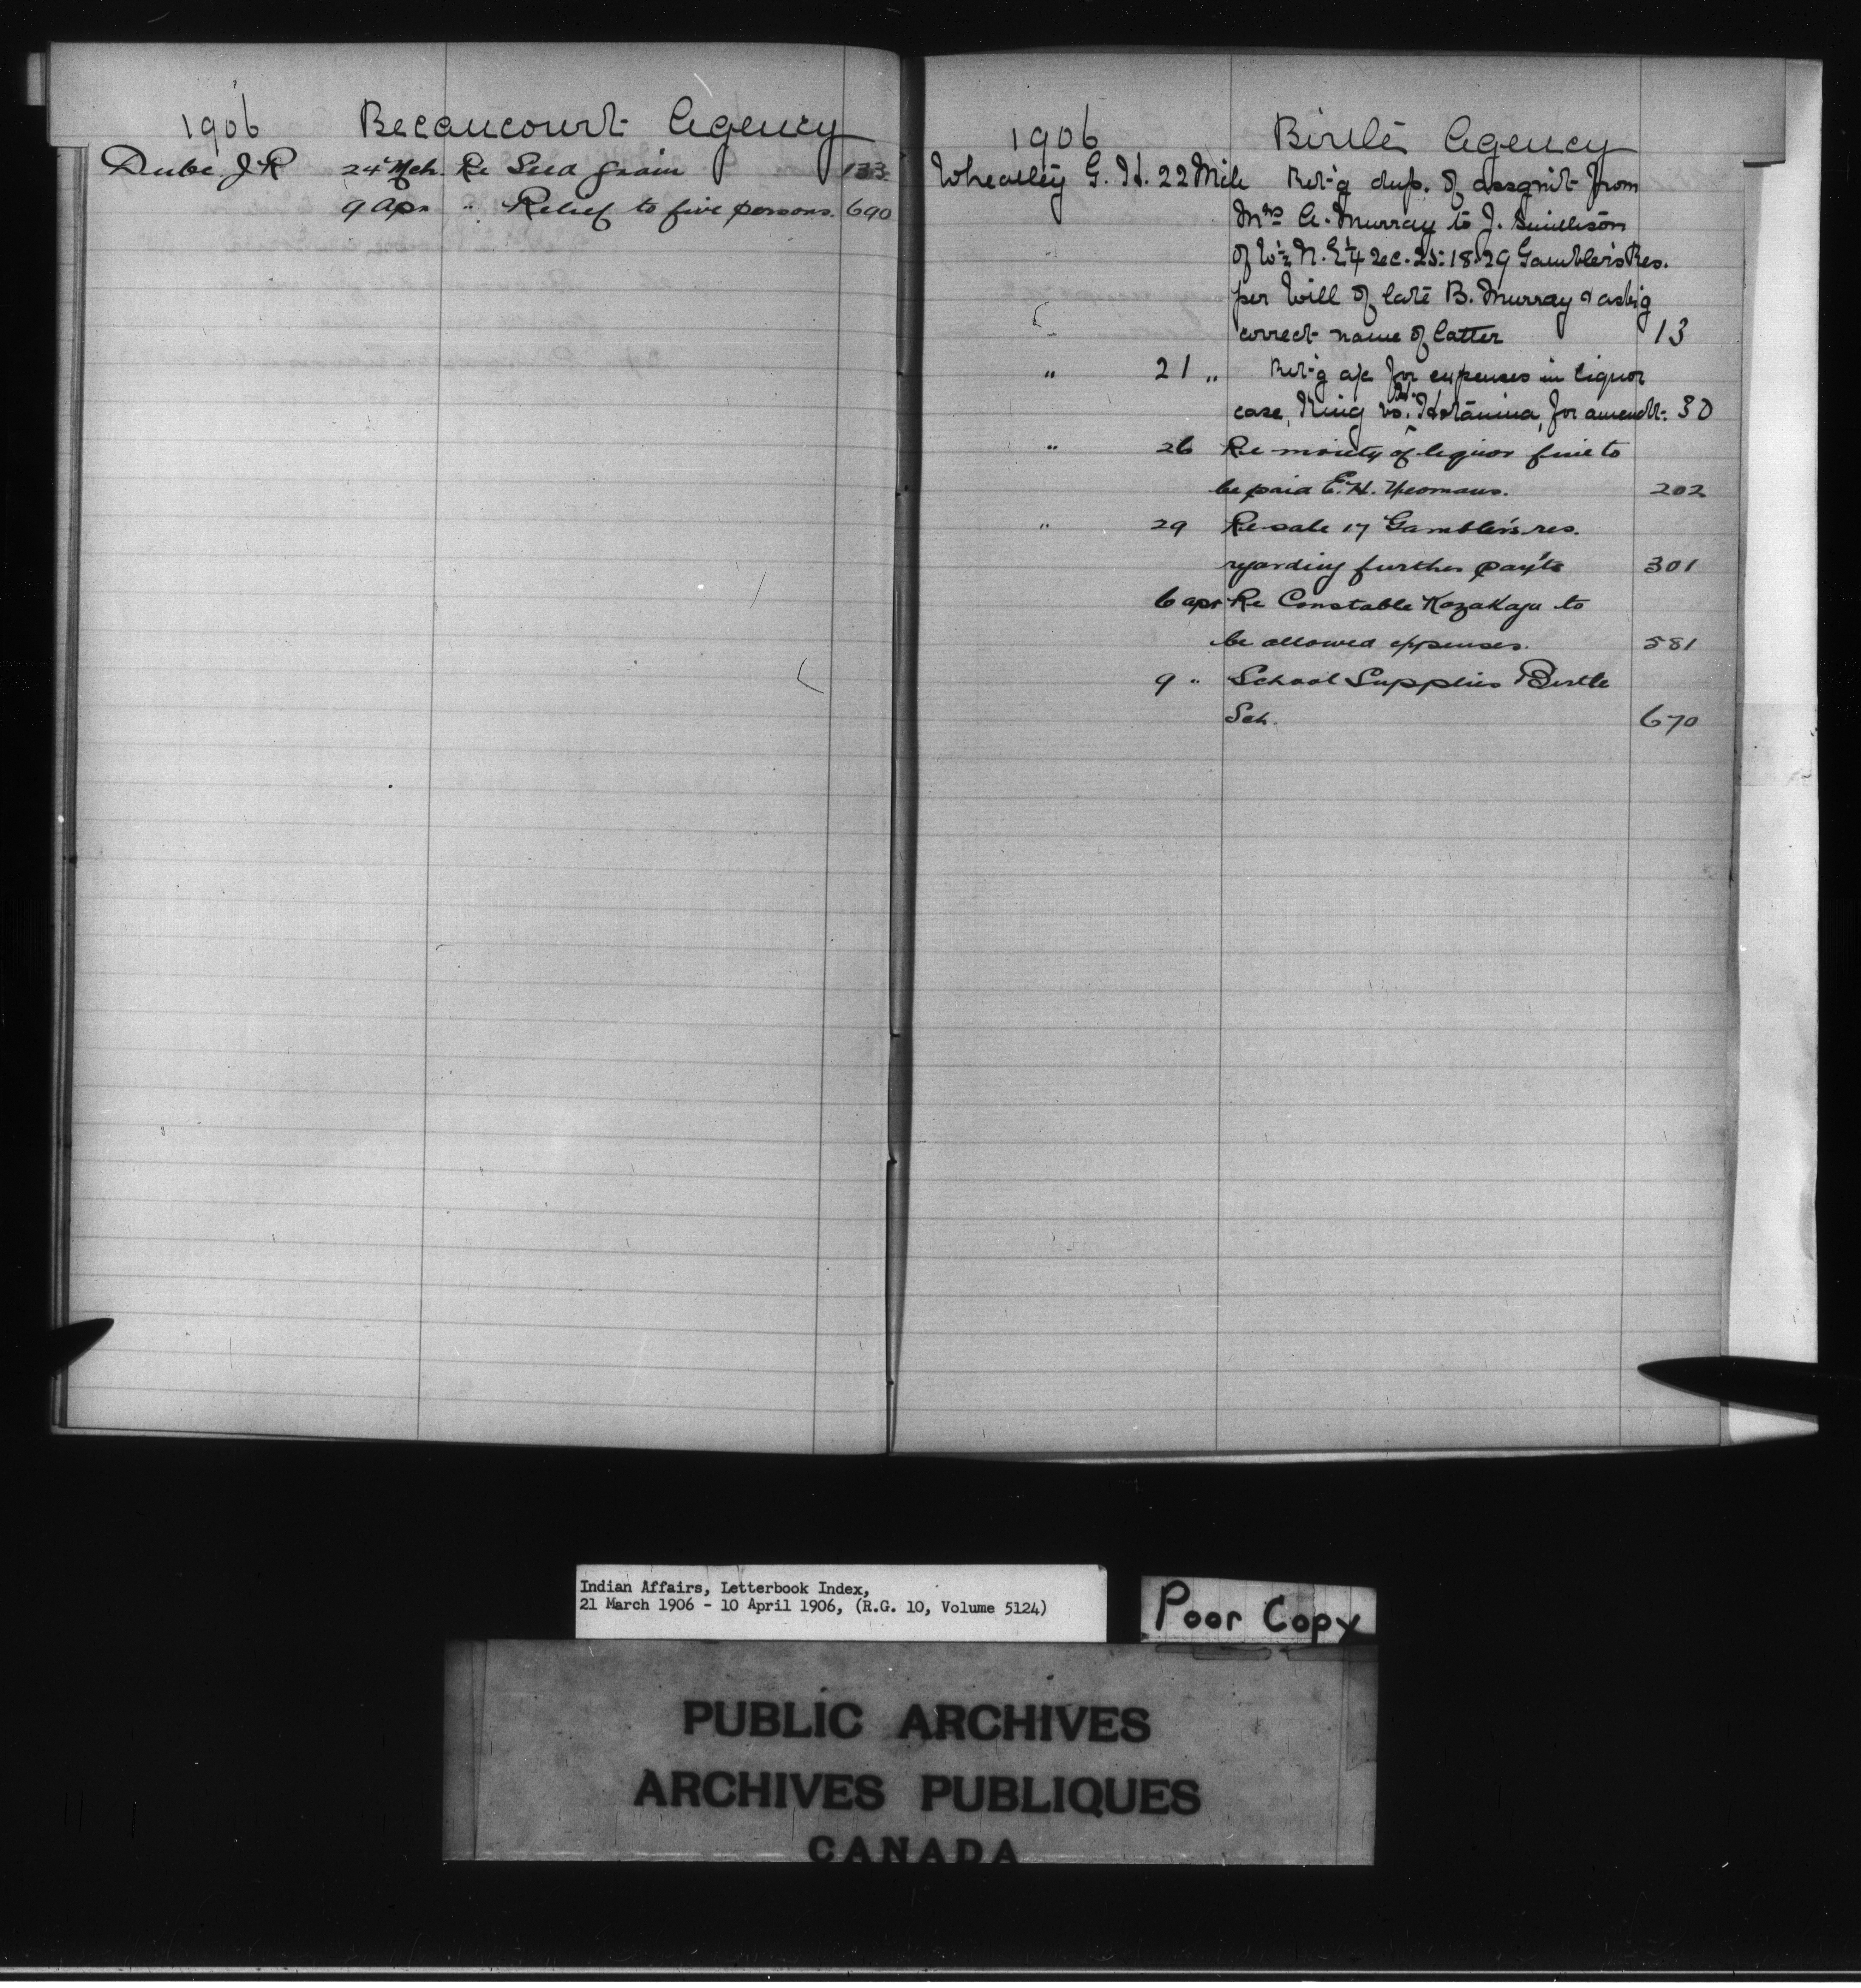 1906 Becancourt Agency
Dube J. R 24 Mch. Re Seed grain 133
9 Apr " Relief to five persons. 690
1906 Birtle Agency
Wheatley G. H. 22 Mch Ret'g dup. of assgnt from
Mrs A. Murray to J.
of W½ N.E¼ Sec. 25: 18. 29 Gambler's Res.
per Will of late B. Murray & ask'g
correct name of latter 13
" 21 " Ret'g a/c for expenses in liquor
case, King vs. for amendt: 30
" 26 Re moiety of liquor fine to
be paid E. H. Yeomans. 202
" 29 Re sale 17 Gambler's res.
regarding further pay'ts 301
6 apr Re Constable Kazakaju to
be allowed expenses. 581
9 " School Supplies Birtle
Sch. 670
Indian Affairs, Letterbook Index,
21 March 1906 - 10 April 1906, (R.G. 10, Volume 5124)
Poor Copy
PUBLIC ARCHIVES
ARCHIVES PUBLIQUES
CANADA